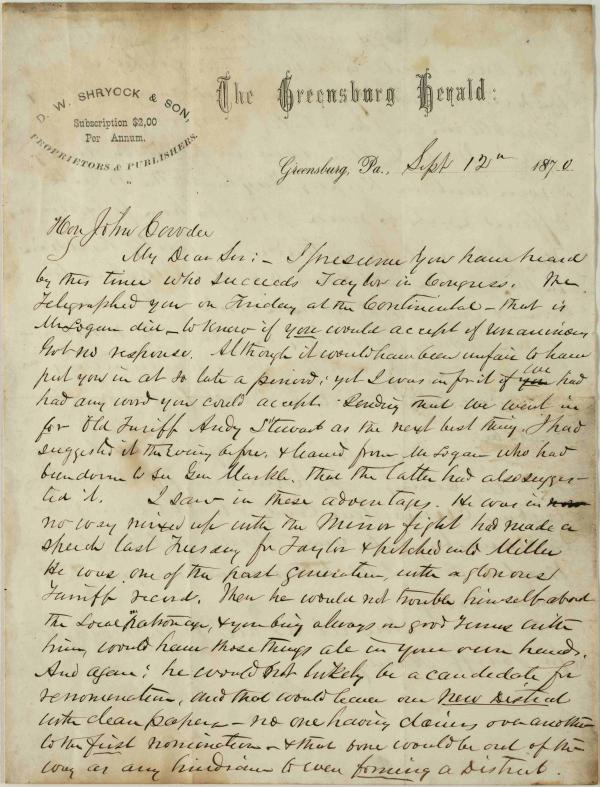 D. W. SHRYOCK & SON,
Subscription $2,00
Per Annum.
PROPRIETORS & PUBLISHERS.
The Greensburg Herald:
Greensburg, Pa., Sept 12th 1870
Hon John Covode
My Dear Sir:- I presume you have heard
by this time who succeeds Taylor in Congress. We
Telegraphed you on Friday at the Continental - that is
McLogan did - to know if you would accept if unanimous
Got no response. Although it would have been unfair to have
put you in at so late a period; yet I was in for it if you we had
had any word you could accept. Sending that we went in
for Old Tariff Andy Stewart as the next best thing. I had
suggested it the evening before, & leaned from McLogan who had
been down to see Gen Markle, that the latter had also sugges-
ted it. I saw in these advantages. He was in
no way mixed up with the Minor fight had made a
speech last Tuesday for Taylor & pitched into Miller
He was one of the past generation, with a glorious
Tarriff record. Then he would not trouble himself about
the Local Patronage, & you being always on good Terms with
him, would have those things all in your own hands.
And again; he would not likely be a candidate for
renomination, and that would leave our New District
with clean papers - no one having claims over another
to the first nomination - & that one would be out of the
way as any hindrance to even forming a District.